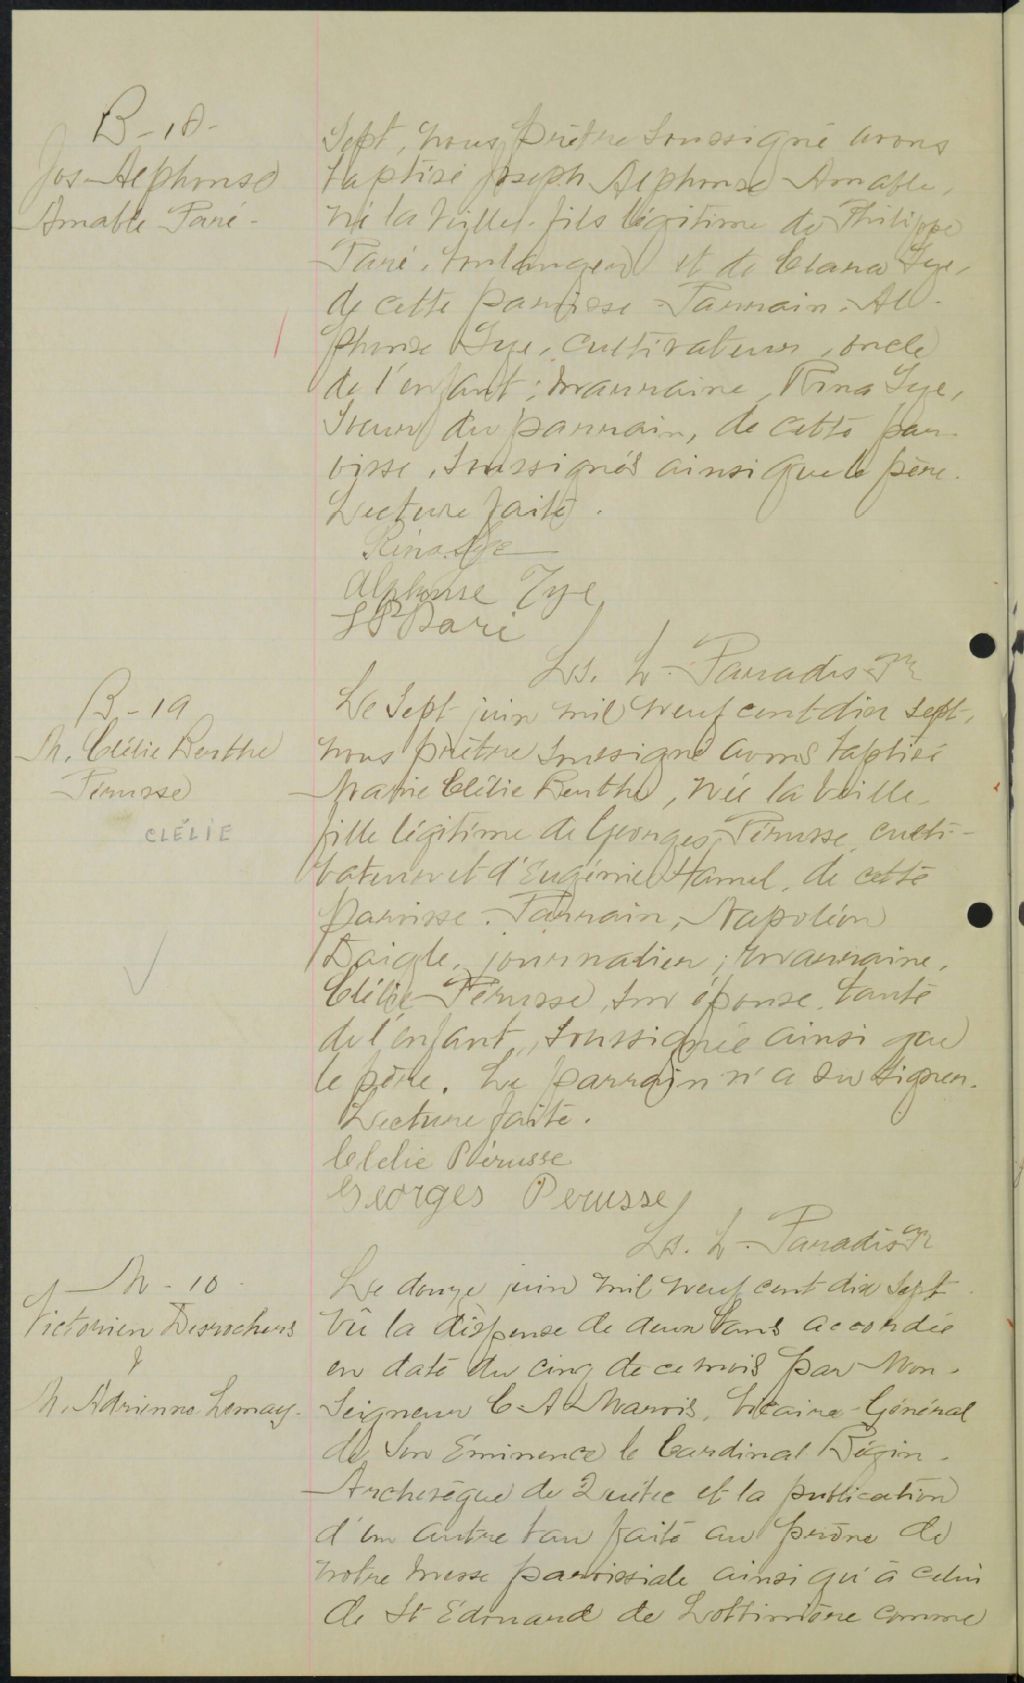 B-18-
Jos-Alphonse
Amable Paré-
Sept, nous prêtre soussigné avons
baptisé Joseph Alphonse Amable,
né la veille, fils légitime de Philippe
Paré, boulanger et de Clara Tye,
de cette paroisse - Parrain, Al-
phonse Tye, cultivateur, oncle
de l'enfant; marraine, Rina Tye,
soeur du parrain, de cette par-
oisse, soussignés ainsi que le père.
Lecture faite.
Rina Tye
Alphonse Tye
Paré
Ls. L. Paradis Ptr
B-19
M. Clélie Berthe
Pérusse
CLÉLIE
Le sept juin mil neuf cent dix sept,
nous prêtre soussigné avons baptisé
Marie Clélie Berthe, née la veille,
fille légitime de Georges Pérusse, culti-
vateur et d'Eugénie Hamel, de cette
paroisse. Parrain, Napoléon
Daigle, journalier; marraine,
Clélie Pérusse, son épouse, tante
de l'enfant, soussignée ainsi que
le père. Le parrain n'a su signer.
Lecture faite.
Clelie Pérusse
Georges Perusse
Ls. L. Paradis Ptr
M-10
Victorien Desrochers
&
M. Adrienne Lemay-
Le douze juin mil neuf cent dix sept
Vû la dispense de deux bans accordée
en date du cinq de ce mois par Mon-
seigneur C-A Marois, Vicaire-Général
de Son Éminence le Cardinal Bégin,
Archevêque de Québec et la publication
d'un autre ban faite au prône de
notre messe paroissiale ainsi qu'à celui
de St Edouard de Lotbinière comme